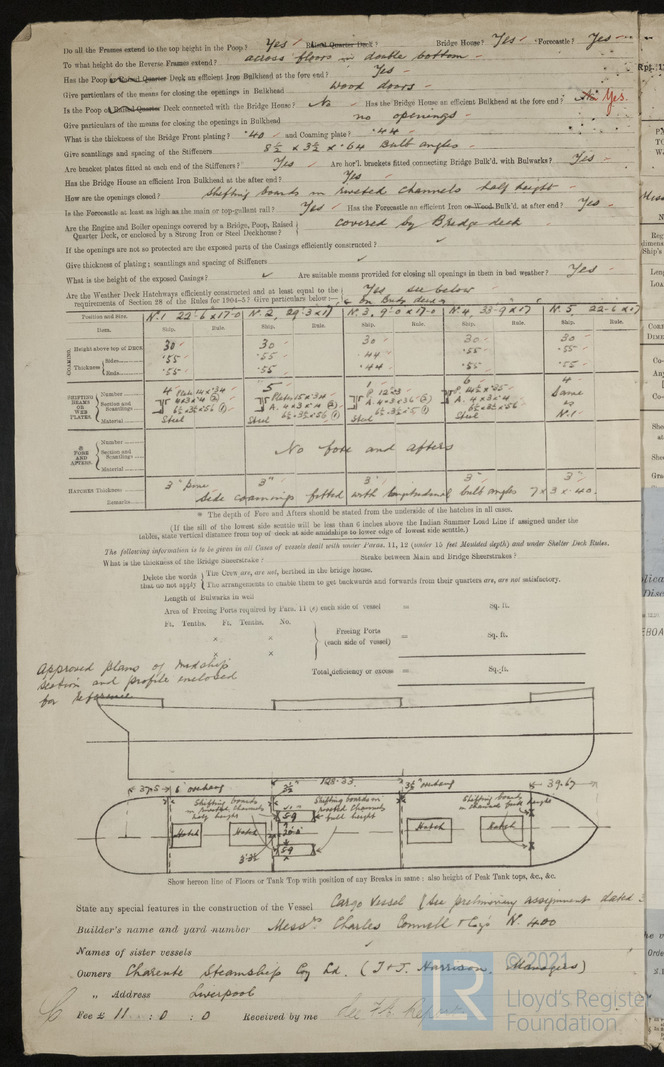 Do all the Frames extend to the top height in the Poop? Yes Raised Quarter Deck? Bridge House? Yes Forecastle? Yes
To what height do the Reverse Frames extend? across floors in double bottom
Has the Poop or Raised Quarter Deck an efficient Iron Bulkhead at the fore end? Yes
Give particulars of the means for closing the openings in Bulkhead Wood doors
Is the Poop or Raised Quarter Deck connected with the Bridge House? No Has the Bridge House an efficient Bulkhead at the fore end? Yes.
Give particulars of the means for closing the openings in Bulkhead no openings
What is the thickness of the Bridge Front plating? .40 and Coaming plate? .44
Give scantlings and spacing of the Stiffeners 8½ x 3½ x .64 Bulb angles
Are bracket plates fitted at each end of the Stiffeners? Yes Are hor'l. brackets fitted connecting Bridge Bulk'd. with Bulwarks? Yes
Has the Bridge House an efficient Iron Bulkhead at the after end? Yes
How are the openings closed? Shifting boards in riveted channels half height
Is the Forecastle at least as high as the main or top-gallant rail? Yes Has the Forecastle an efficient Iron or Wood Bulk'd. at after end? Yes
Are the Engine and Boiler openings covered by a Bridge, Poop, Raised Quarter Deck, or enclosed by a Strong Iron or Steel Deckhouse? covered by Bridge deck
If the openings are not so protected are the exposed parts of the Casings efficiently constructed?
Give thickness of plating; scantlings and spacing of Stiffeners
What is the height of the exposed Casings? Are suitable means provided for closing all openings in them in bad weather? Yes
Are the Weather Deck Hatchways efficiently constructed and at least equal to the requirements of Section 28 of the Rules for 1904-5? Give particulars below:— Yes see below
Position and Size. No. 1 22-6 x 17-0 No. 2, 29-3 x 17 No. 3, 9-0 x 17-0 No. 4, 33-9 x 17 No. 5 22-6 x 17
Item. Ship. Rule. Ship. Rule. Ship. Rule. Ship. Rule. Ship. Rule.
COAMING Height above top of DECK 30 30 30 30 30
Thickness Sides .55 .55 .44 .55 .55
Ends .55 .55 .44 .55 .55
SHIFTING BEAMS OR WEB PLATES. Number 4 5 1 6 4
Section and Scantlings Same as No. 1
Material Steel Steel Steel
FORE AND AFTERS. Number
Section and Scantlings No fore and afters
Material
HATCHES Thickness 3" pine 3" 3" 3" 3"
Remarks Side coamings fitted with longitudinal bulb angles 7 x 3 x .40.
* The depth of Fore and Afters should be stated from the underside of the hatches in all cases.
(If the sill of the lowest side scuttle will be less than 6 inches above the Indian Summer Load Line if assigned under the
tables, state vertical distance from top of deck at side amidships to lower edge of lowest side scuttle.)
The following information is to be given in all Cases of vessels dealt with under Paras. 11, 12 (under 15 feet Moulded depth) and under Shelter Deck Rules.
What is the thickness of the Bridge Sheerstrake? Strake between Main and Bridge Sheerstrakes?
Delete the words that do not apply { The Crew are, are not, berthed in the bridge house.
The arrangements to enable them to get backwards and forwards from their quarters are, are not satisfactory.
Length of Bulwarks in well
Area of Freeing Ports required by Para. 11 (e) each side of vessel = Sq. ft.
Ft. Tenths. Ft. Tenths. No.
x
x
x
Freeing Ports (each side of vessel) = Sq. ft.
Total deficiency or excess = Sq. ft.
approved plans of midship
section and profile enclosed
for reference
37.5 6' overhang 128.33 3½' overhang 39.67
Shifting boards in riveted channels half height
Shifting boards in riveted channels full height
Hatch Hatch Hatch Hatch
Show hereon line of Floors or Tank Top with position of any Breaks in same: also height of Peak Tank tops, &c., &c.
State any special features in the construction of the Vessel Cargo Vessel (See preliminary assignment dated
Builder's name and yard number Messrs. Charles Connell & Coy's No. 400
Names of sister vessels
Owners Charente Steamship Coy Ld. (T & J. Harrison, Managers)
" Address Liverpool
Fee £ 11 : 0 : 0 Received by me See F.E. Report
© 2021
LR
Lloyd's Register
Foundation